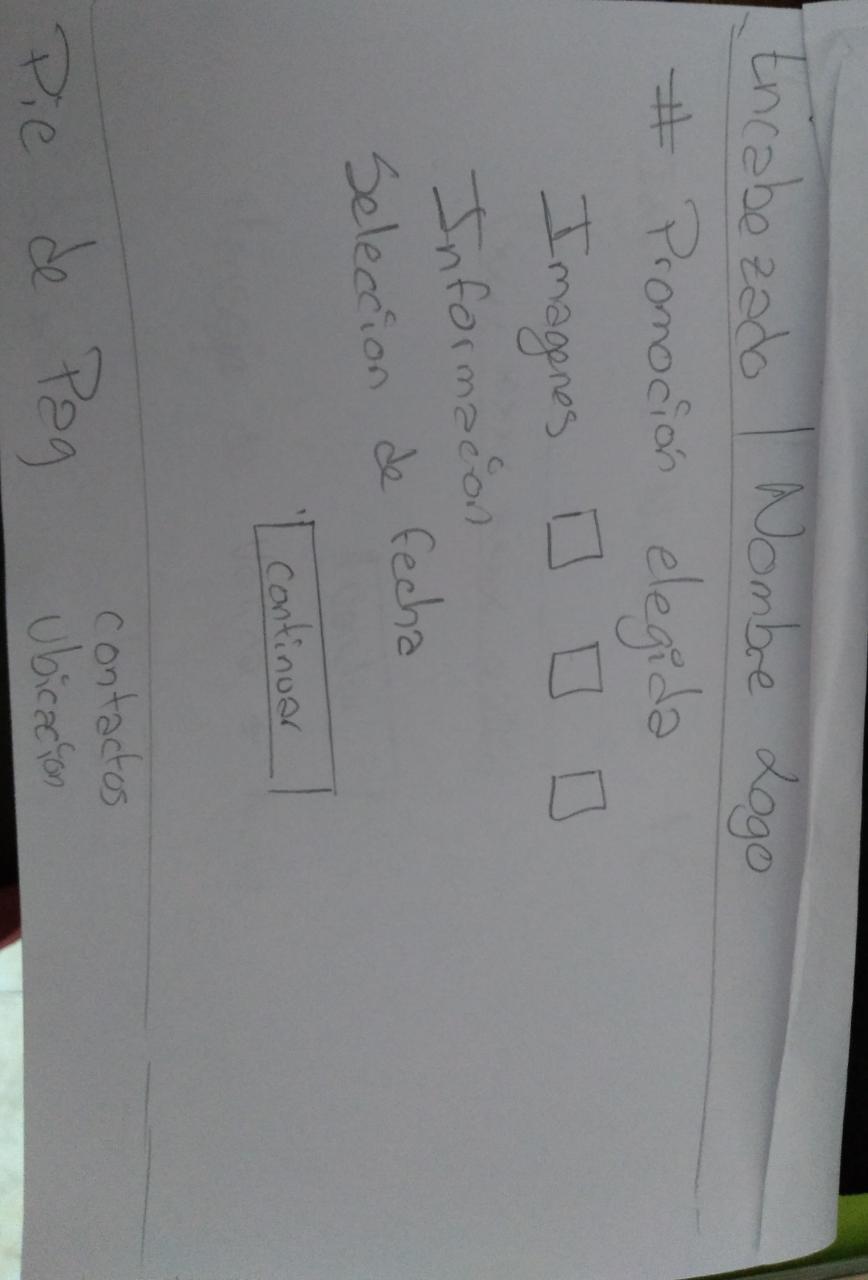 Encabezado | Nombre Logo
# Promocion elegida
Imagenes
Informacion
Seleccion de fecha
continuar
contactos
Pie de Pag
Ubicacion